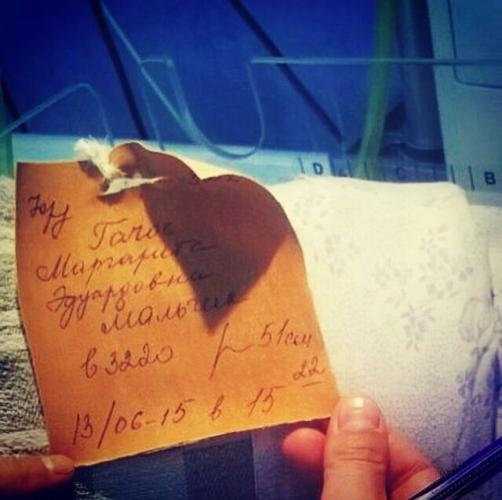 D C B
Маргарита
Эдуардовна
Мальчик
в 3220 р 51см
13/06-15 в 15 22